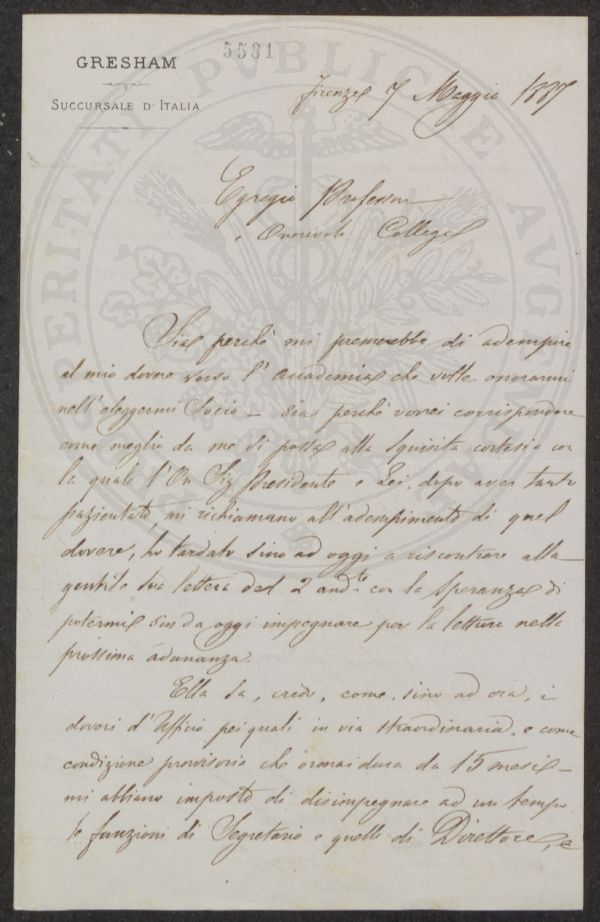 5581
GRESHAM
SUCCURSALE D'ITALIA
Firenze 7 Maggio 1887
Egregio Professore
e Onorevole Collega
Sia perchè mi premerebbe di adempire
al mio dovere verso l'Accademia che volle onorarmi
nell'eleggermi Socio - sia perchè vorrei corrispondere
come meglio da me si possa alla squisita cortesia con
la quale l'On. Sig Presidente e Lei, dopo aver tanto
pazientato, mi richiamano all'adempimento di quel
dovere, ho tardato sino ad oggi a riscontrare alla
gentile sua lettera del 2 and.te con la speranza di
potermi sin da oggi impegnare per la lettura nella
prossima adunanza.
Ella sa, credo, come, sino ad ora, i
doveri d'Ufficio pei quali in via straordinaria, e come
condizione provvisoria che oramai dura da 15 mesi -
mi abbiano imposto di disimpegnare ad un tempo
le funzioni di Segretario e quelle di Direttore, e
PERITATI PVBLICAE AVGENDAE